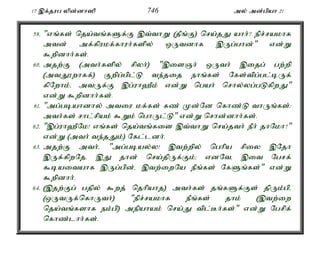 17 இக்தரப லின்னாஸி 746 அல் அன்பியா 21
59. "எங்கள் தெய்வங்களுக்கு இவ்வாறு (தீங்கு) செய்தது யார்? நிச்சயமாக
அவன் அக்கிரமக்காரர்களில் ஒருவனாக இருப்பான்" என்று
கூறினார்கள்.
60. அதற்கு (அவர்களில் சிலர்) "இளைஞர் ஒருவர் இதைப் பற்றி
(அவதூறாகக்) குறிப்பிட்டு வந்ததை நாங்கள் கேள்விப்பட்டிருக்
கிறோம். அவருக்கு இப்ராஹீம் என்று பெயர் சொல்லப்படுகிறது"
என்று கூறினார்கள்.
61. "அப்படியானால் அவரை மக்கள் கண் முன்னே கொண்டு வாருங்கள்;
அவர்கள் சாட்சியம் கூறும் பொருட்டு" என்று சொன்னார்கள்.
62. "இப்ராஹீமே! எங்கள் தெய்வங்களை இவ்வாறு செய்தவர் நீர் தாமோ?"
என்று (அவர் வந்ததும்) கேட்டனர்.
63. அதற்கு அவர், "அப்படியல்ல! இவற்றில் பெரிய சிலை இதோ
இருக்கிறதே, இது தான் செய்திருக்கும்; எனவே, இவை பேசக்
கூடியவையாக இருப்பின், இவற்றையே நீங்கள் கேளுங்கள்" என்று
கூறினார்.
64. (இதற்குப் பதில் கூறத் தெரியாத) அவர்கள் தங்களுக்குள் திரும்பி,
(ஒருவருக்கொருவர்) "நிச்சயமாக நீங்கள் தாம் (இவற்றை
தெய்வங்களாக நம்பி) அநியாயம் செய்து விட்டீர்கள்" என்று பேசிக்
கொண்டார்கள்.